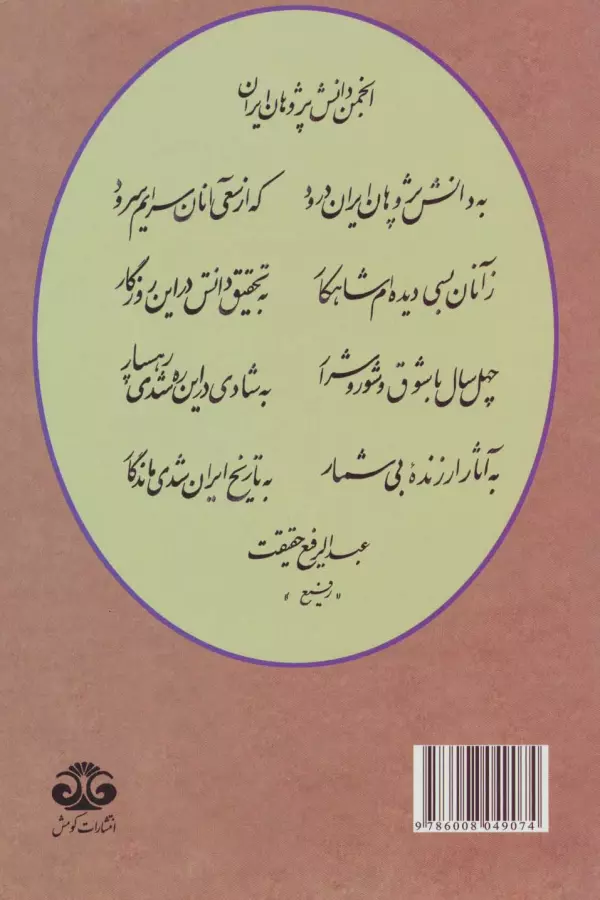 انجمن دانش پژوهان ایران
به دانش پژوهان ایران درود که از سعی آنان سرایم سرود
ز آنان بسی دیده ام شاهکار به تحقیق دانش در این روزگار
چهل سال با شوق و شور و شرار به شادی در این ره شدی رهسپار
به آثار ارزندهٔ بی شمار به تاریخ ایران شدی ماندگار
عبدالرفیع حقیقت
«رفیع»
انتشارات کومش
9 786008 049074